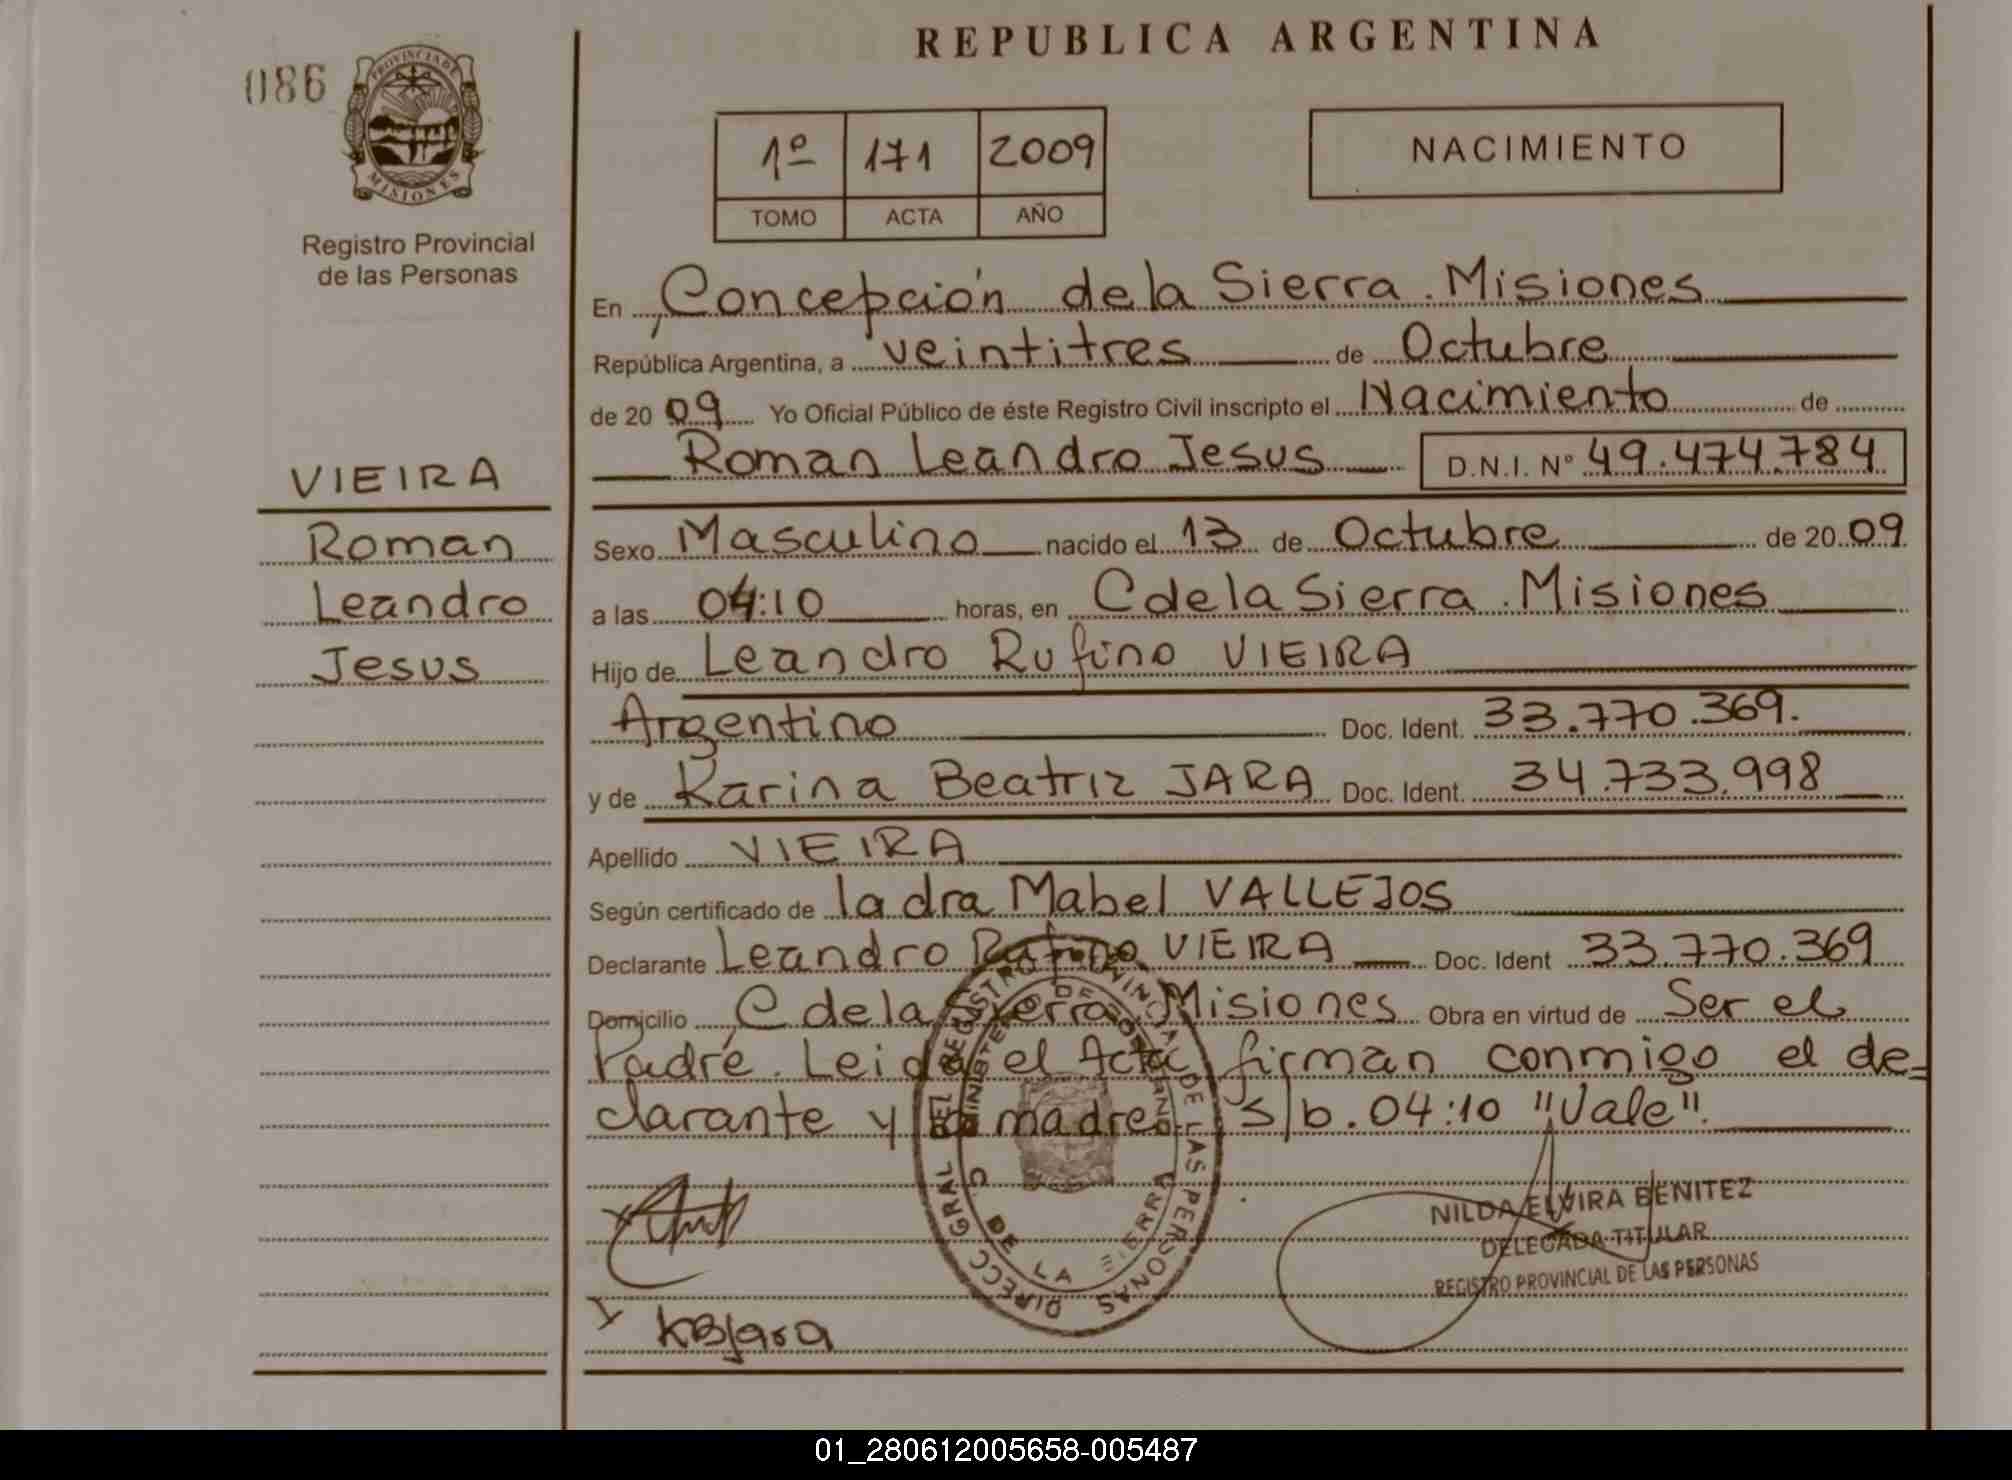 REPUBLICA ARGENTINA
086
PROVINCIA DE
MISIONES
Registro Provincial
de las Personas
1º 171 2009
TOMO ACTA AÑO
NACIMIENTO
En Concepción de la Sierra. Misiones
República Argentina, a veintitres de Octubre
de 20 09 Yo Oficial Público de éste Registro Civil inscripto el Nacimiento de
Roman Leandro Jesus D.N.I. Nº 49.474.784
VIEIRA
Roman
Leandro
Jesus
Sexo Masculino nacido el 13 de Octubre de 20 09
a las 04:10 horas, en C de la Sierra. Misiones
Hijo de Leandro Rufino VIEIRA
Argentino Doc. Ident. 33.770.369.
y de Karina Beatriz JARA Doc. Ident. 34.733.998
Apellido VIEIRA
Según certificado de la dra Mabel VALLEJOS
Declarante Leandro Rufino VIEIRA Doc. Ident 33.770.369
Domicilio C de la Sierra Misiones Obra en virtud de Ser el
Padre. Leida el Acta firman conmigo el de=
clarante y la madre. S/b. 04:10 "Vale".
DIRECC GRAL DEL REGISTRO PROVINCIAL DE LAS PERSONAS
MINISTERIO DE GOBIERNO
C. DE LA SIERRA
NILDA ELVIRA BENITEZ
DELEGADA TITULAR
REGISTRO PROVINCIAL DE LAS PERSONAS
KBJara
01_280612005658-005487